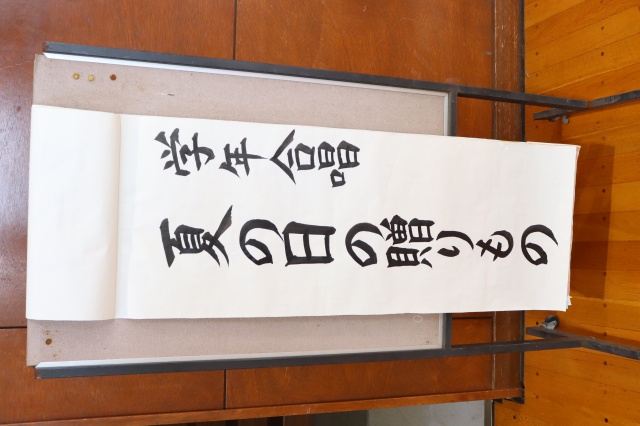 学年合唱
夏の日の贈りもの